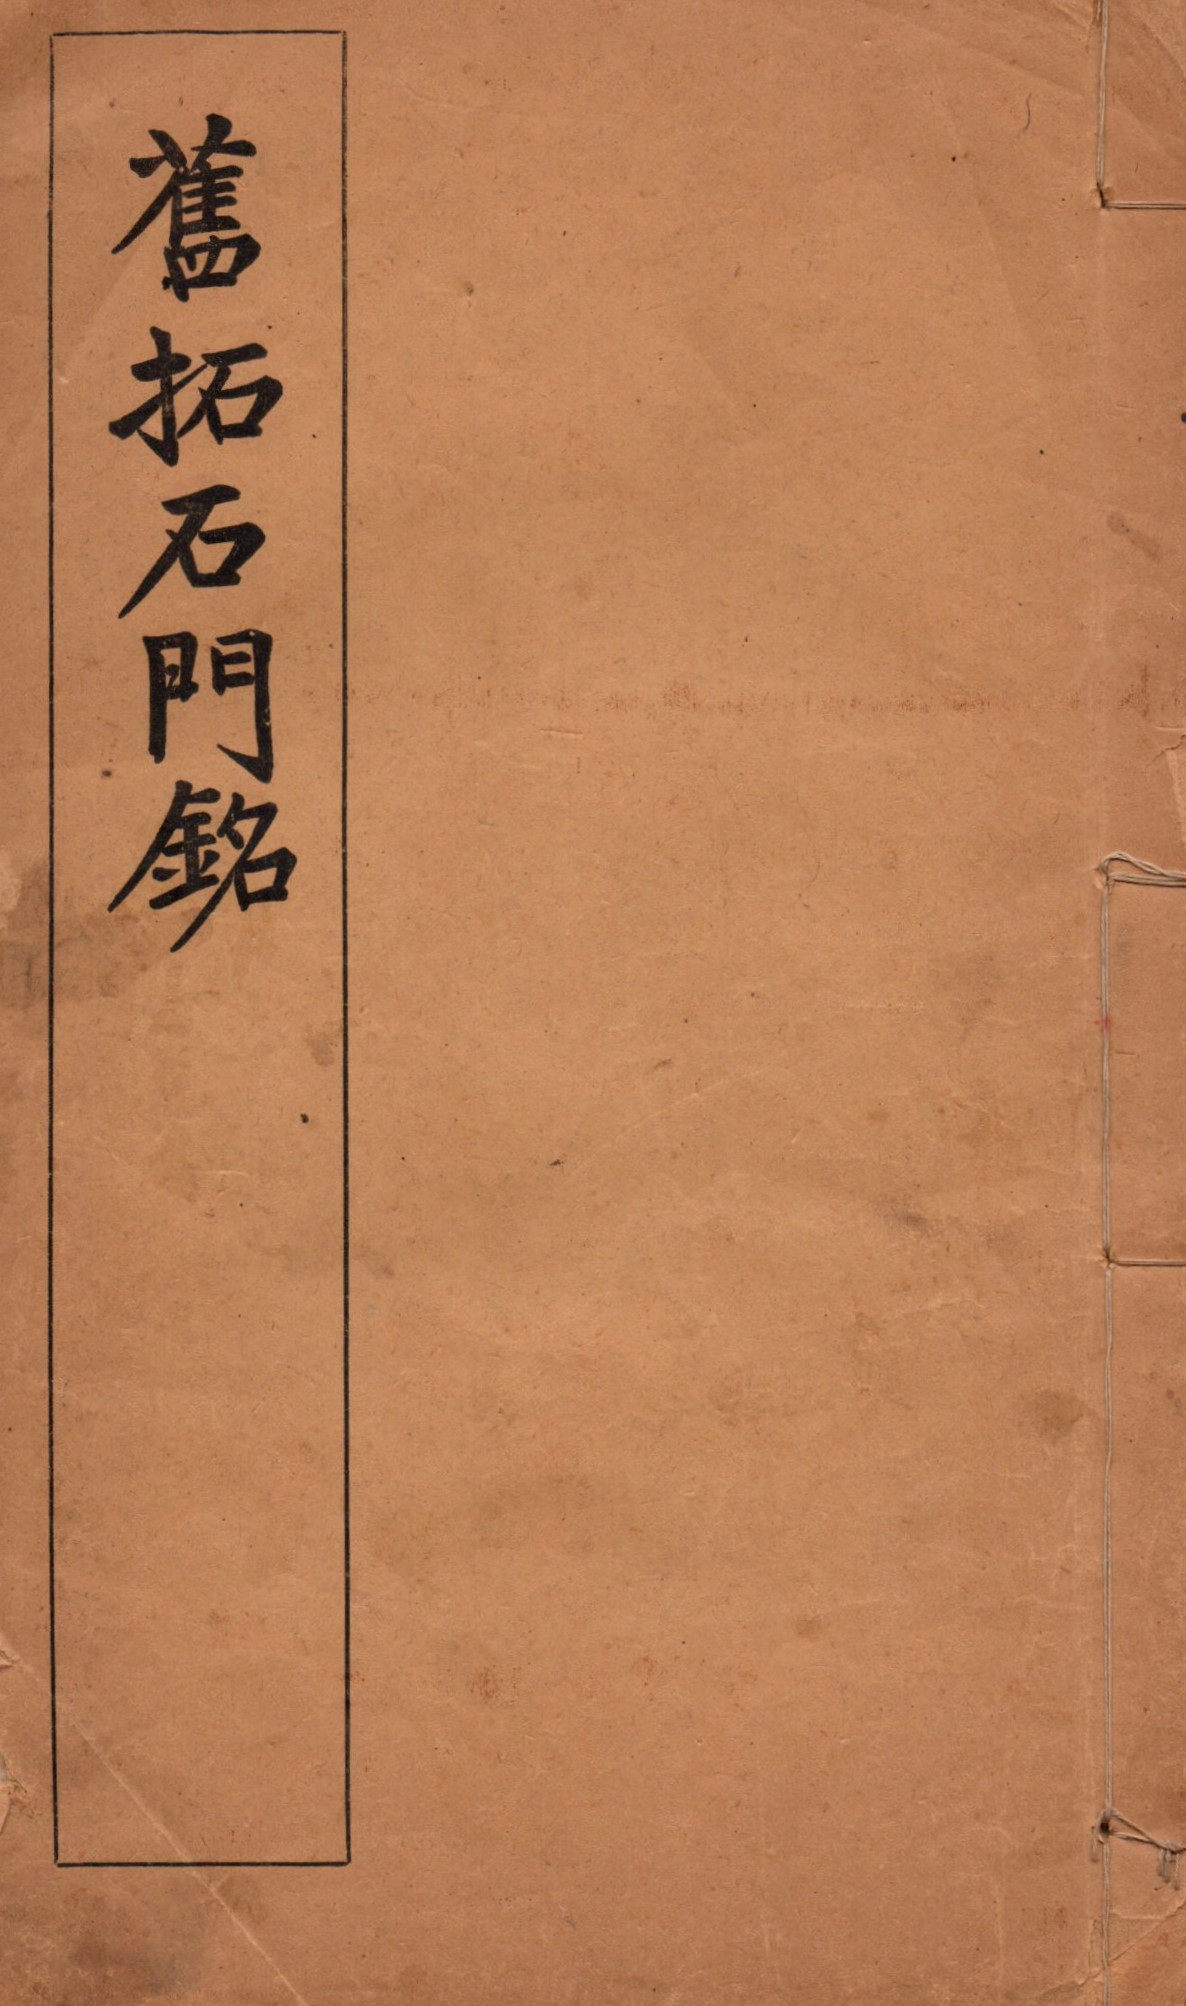 舊拓石門銘